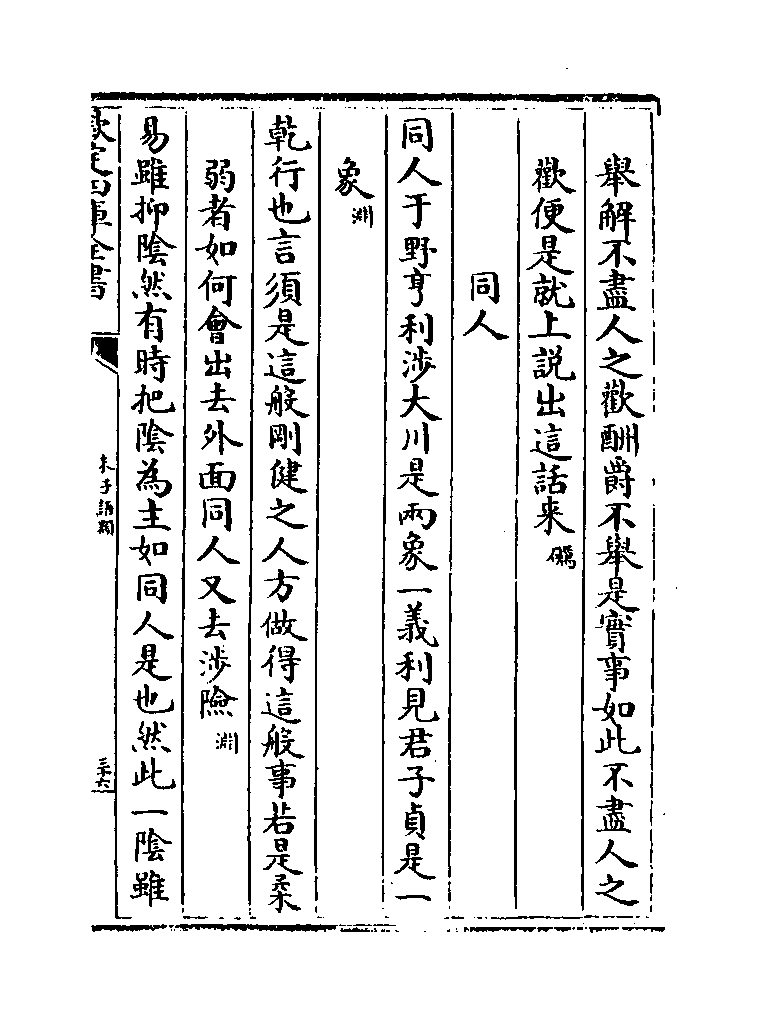 舉解不盡人之歡酬爵不舉是實事如此不盡人之
歡便是就上説出這話来㽦
同人
同人于野亨利涉大川是兩象一義利見君子貞是一
象淵
乾行也言須是這般剛健之人方做得這般事若是柔
弱者如何會出去外面同人又去涉險淵
易雖抑陰然有時把陰為主如同人是也然此一陰雖
欽定四庫全書
朱子語類
三十六